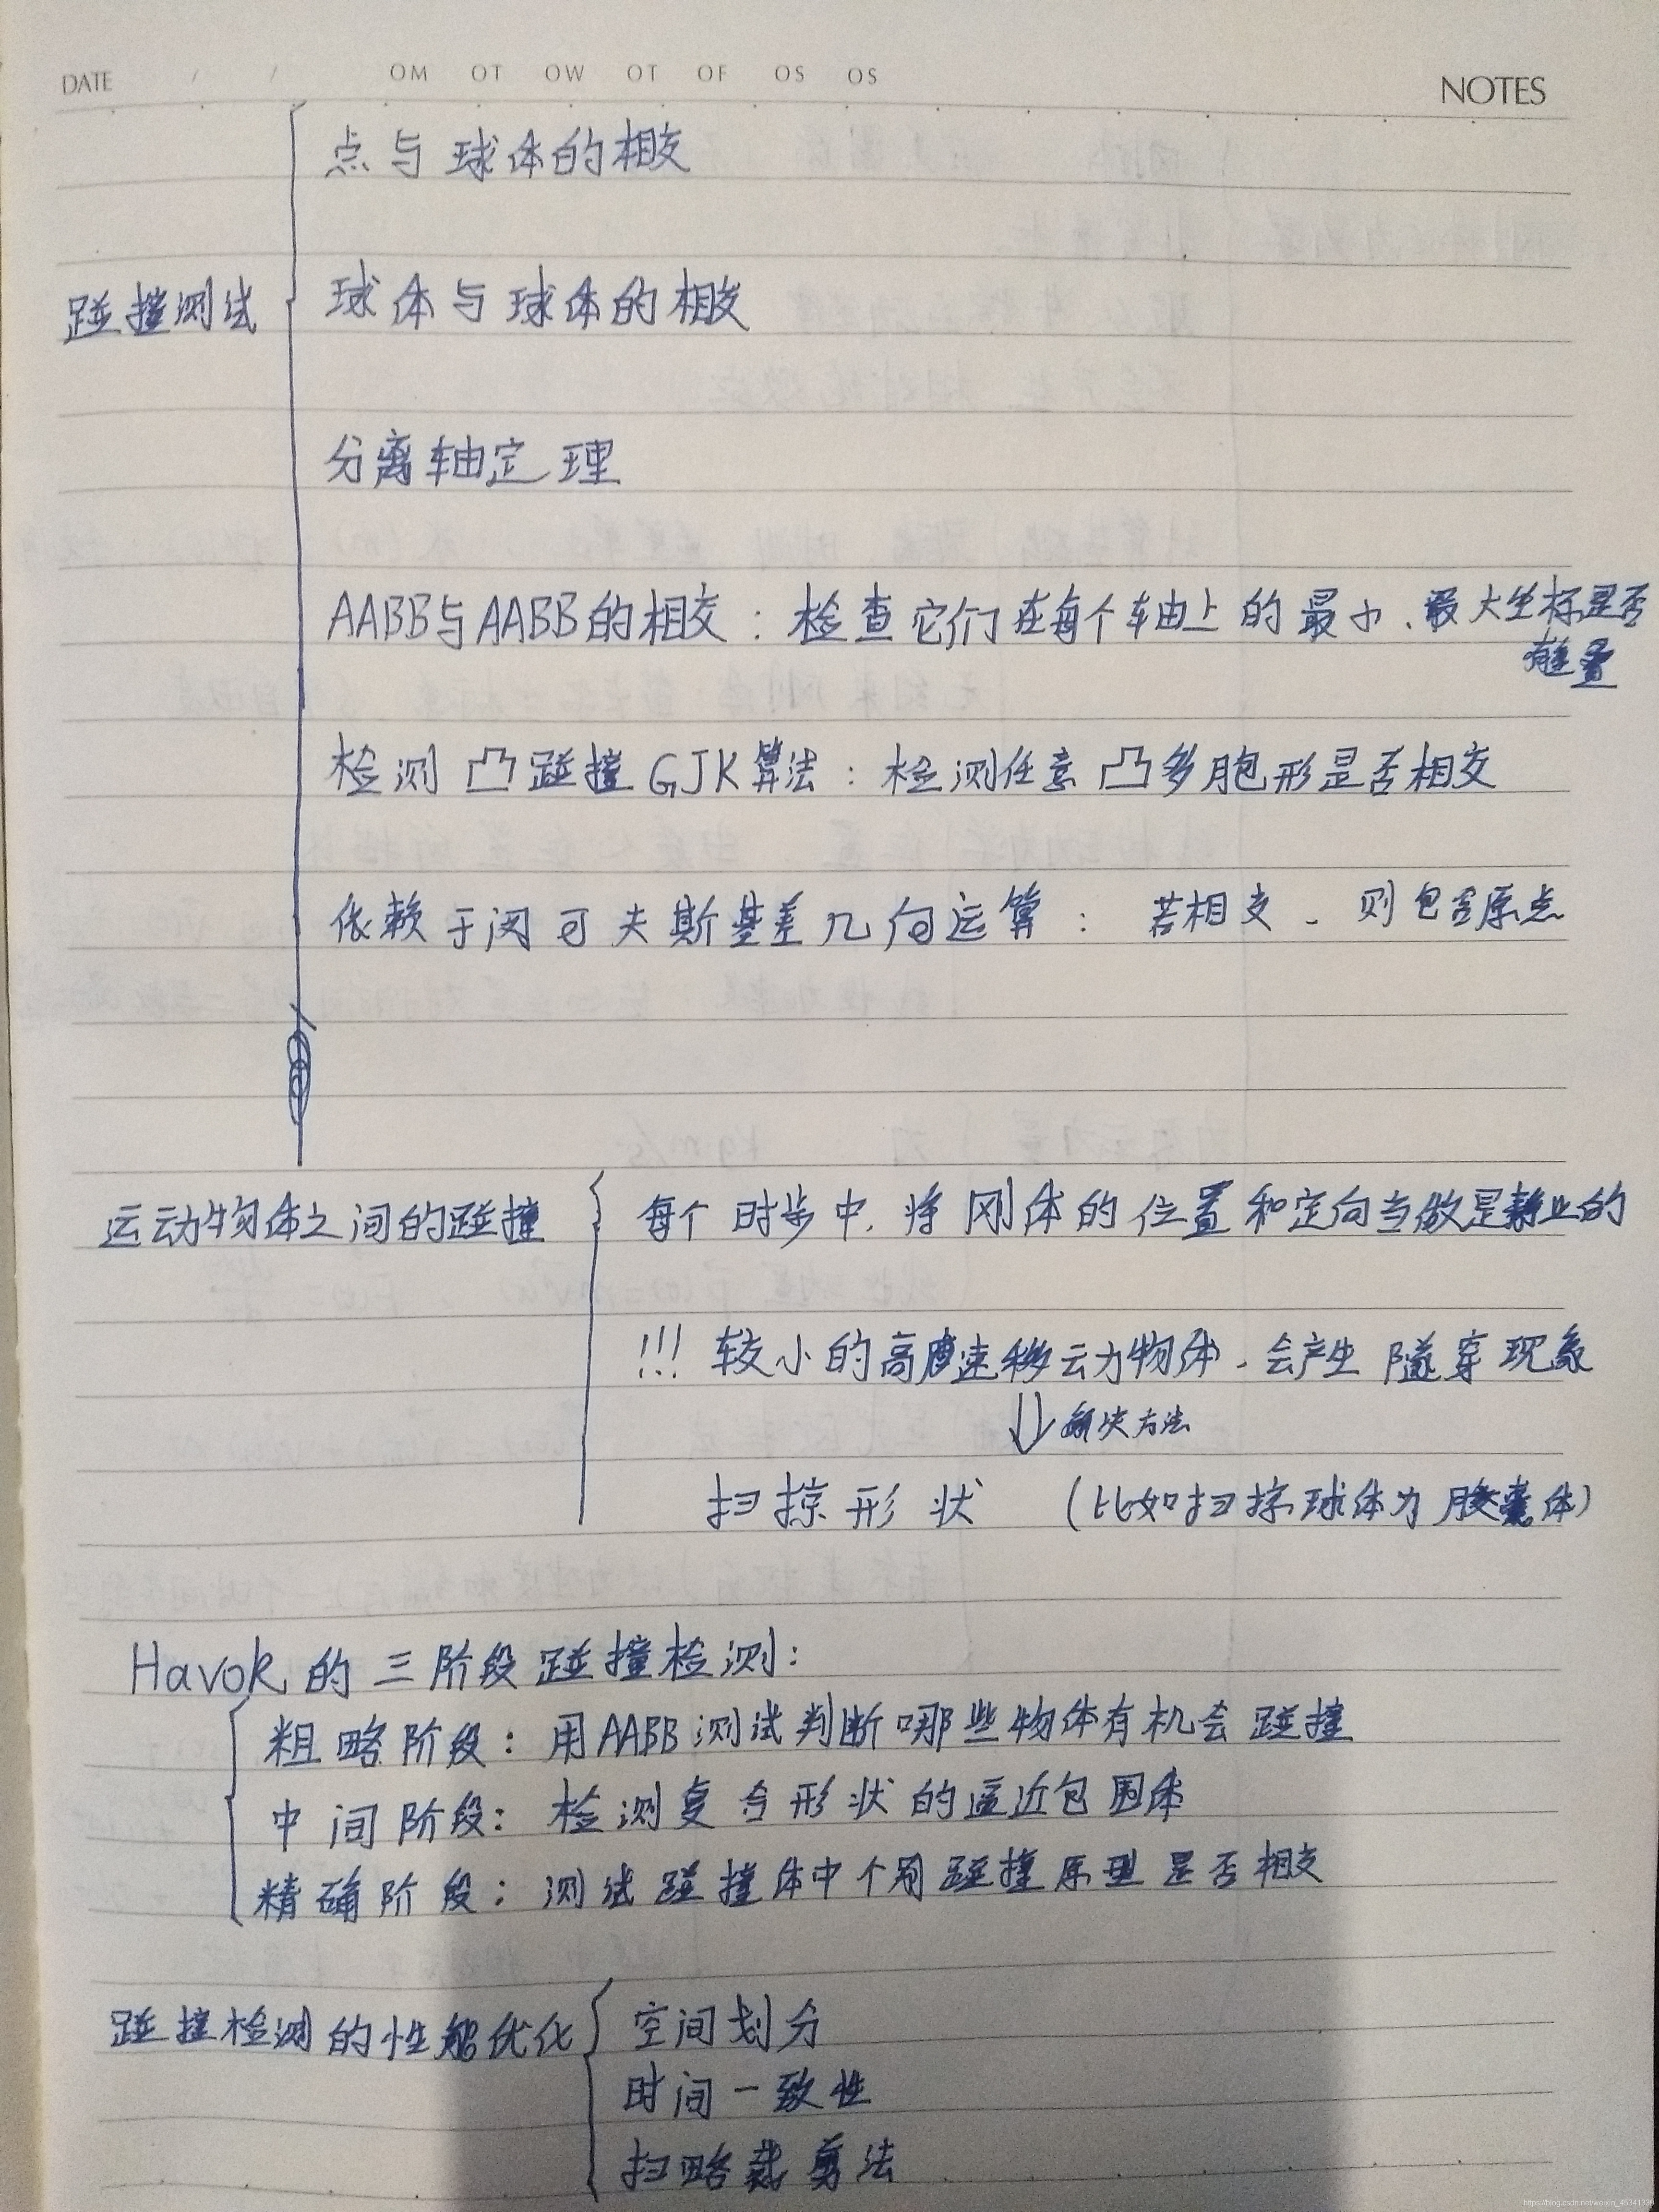 DATE / / OM OT OW OT OF OS OS NOTES
点与球体的相交
碰撞测试
球体与球体的相交
分离轴定理
AABB与AABB的相交：检查它们在每个轴上的最小、最大坐标是否
有重叠
检测凸碰撞GJK算法：检测任意凸多胞形是否相交
依赖于闵可夫斯基差几何运算：若相交、则包含原点
运动物体之间的碰撞
每个时步中，将刚体的位置和定向当做是静止的
!!! 较小的高速移动物体、会产生隧穿现象
解决方法
扫掠形状 (比如扫掠球体为胶囊体)
Havok的三阶段碰撞检测：
粗略阶段：用AABB测试判断哪些物体有机会碰撞
中间阶段：检测复合形状的逼近包围体
精确阶段：测试碰撞体中个别碰撞原型是否相交
碰撞检测的性能优化
空间划分
时间一致性
扫略裁剪法